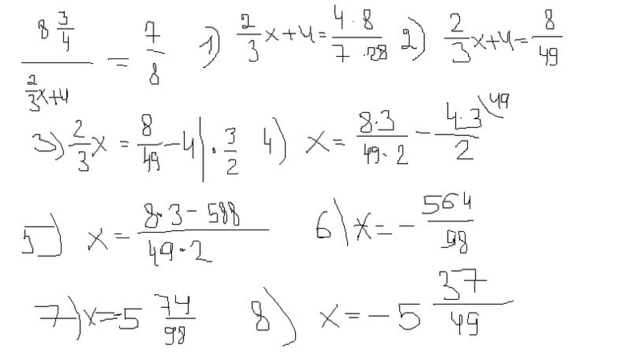 8 3/4 / (2/3 x+4) = 7/8 1) 2/3 x+4 = 4·8 / 7·28 2) 2/3 x+4 = 8/49
3) 2/3 x = 8/49 - 4 | · 3/2 4) x = 8·3 / 49·2 - 4·3 \49 / 2
5) x = 8·3 - 588 / 49·2 6) x = - 564/98
7) x = -5 74/98 8) x = -5 37/49